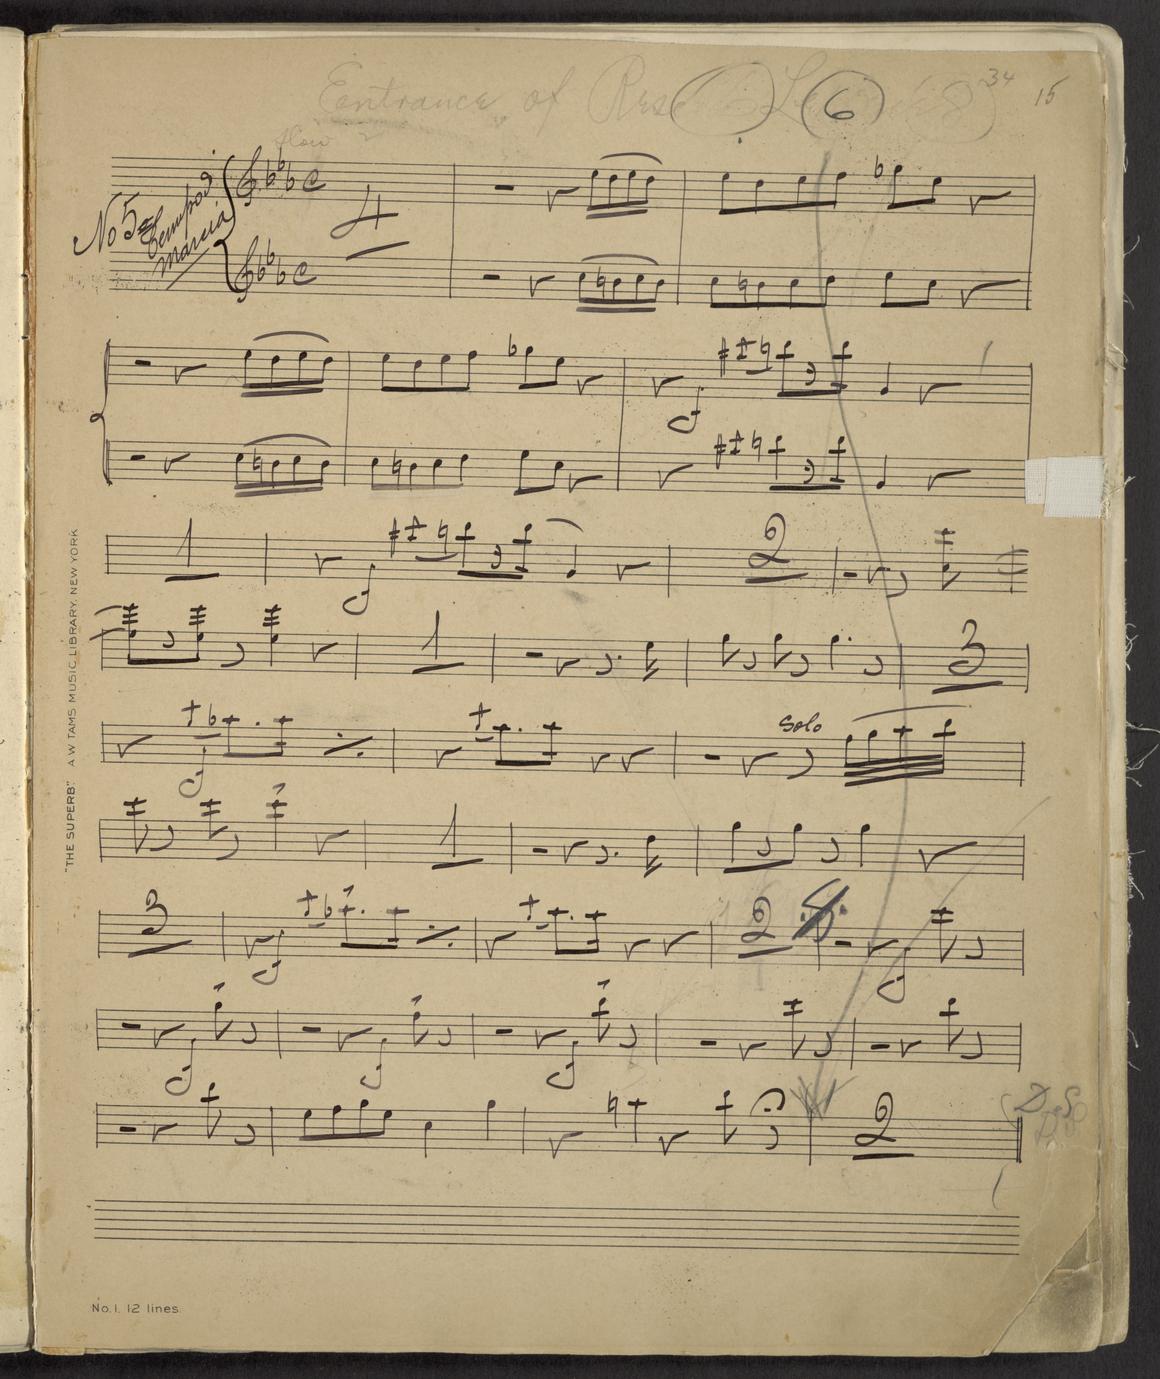 Eentrance of 6 34 15
slow
No 5 Tempo di Marcia
4
1 2
1 3
Solo
1
3 2
2
D.S.
"THE SUPERB" A W TAMS MUSIC LIBRARY, NEW YORK
No. 1. 12 lines.